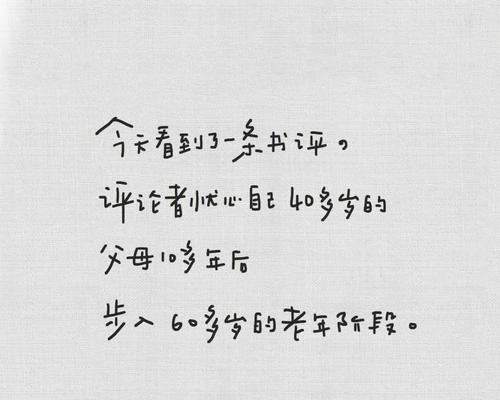 今天看到了一条书评。
评论者忧心自己40多岁的
父母10多年后
步入60多岁的老年阶段。